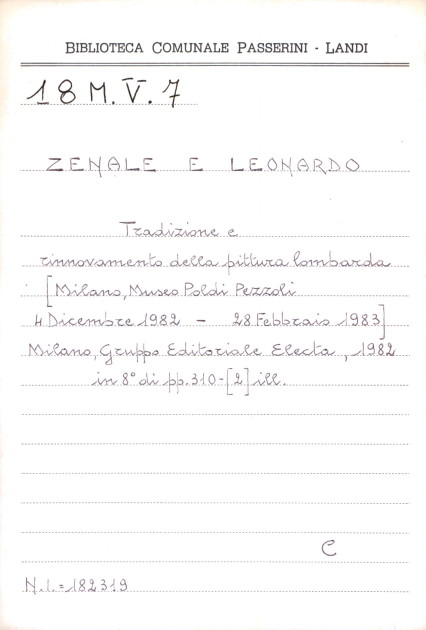 BIBLIOTECA COMUNALE PASSERINI - LANDI
18 M. V. 7
ZENALE E LEONARDO
Tradizione e
rinnovamento della pittura lombarda
[Milano, Museo Poldi Pezzoli
4 Dicembre 1982 - 28 Febbraio 1983]
Milano, Gruppo Editoriale Electa, 1982
in 8° di pp. 310-[2] ill.
C
N.I. = 182319